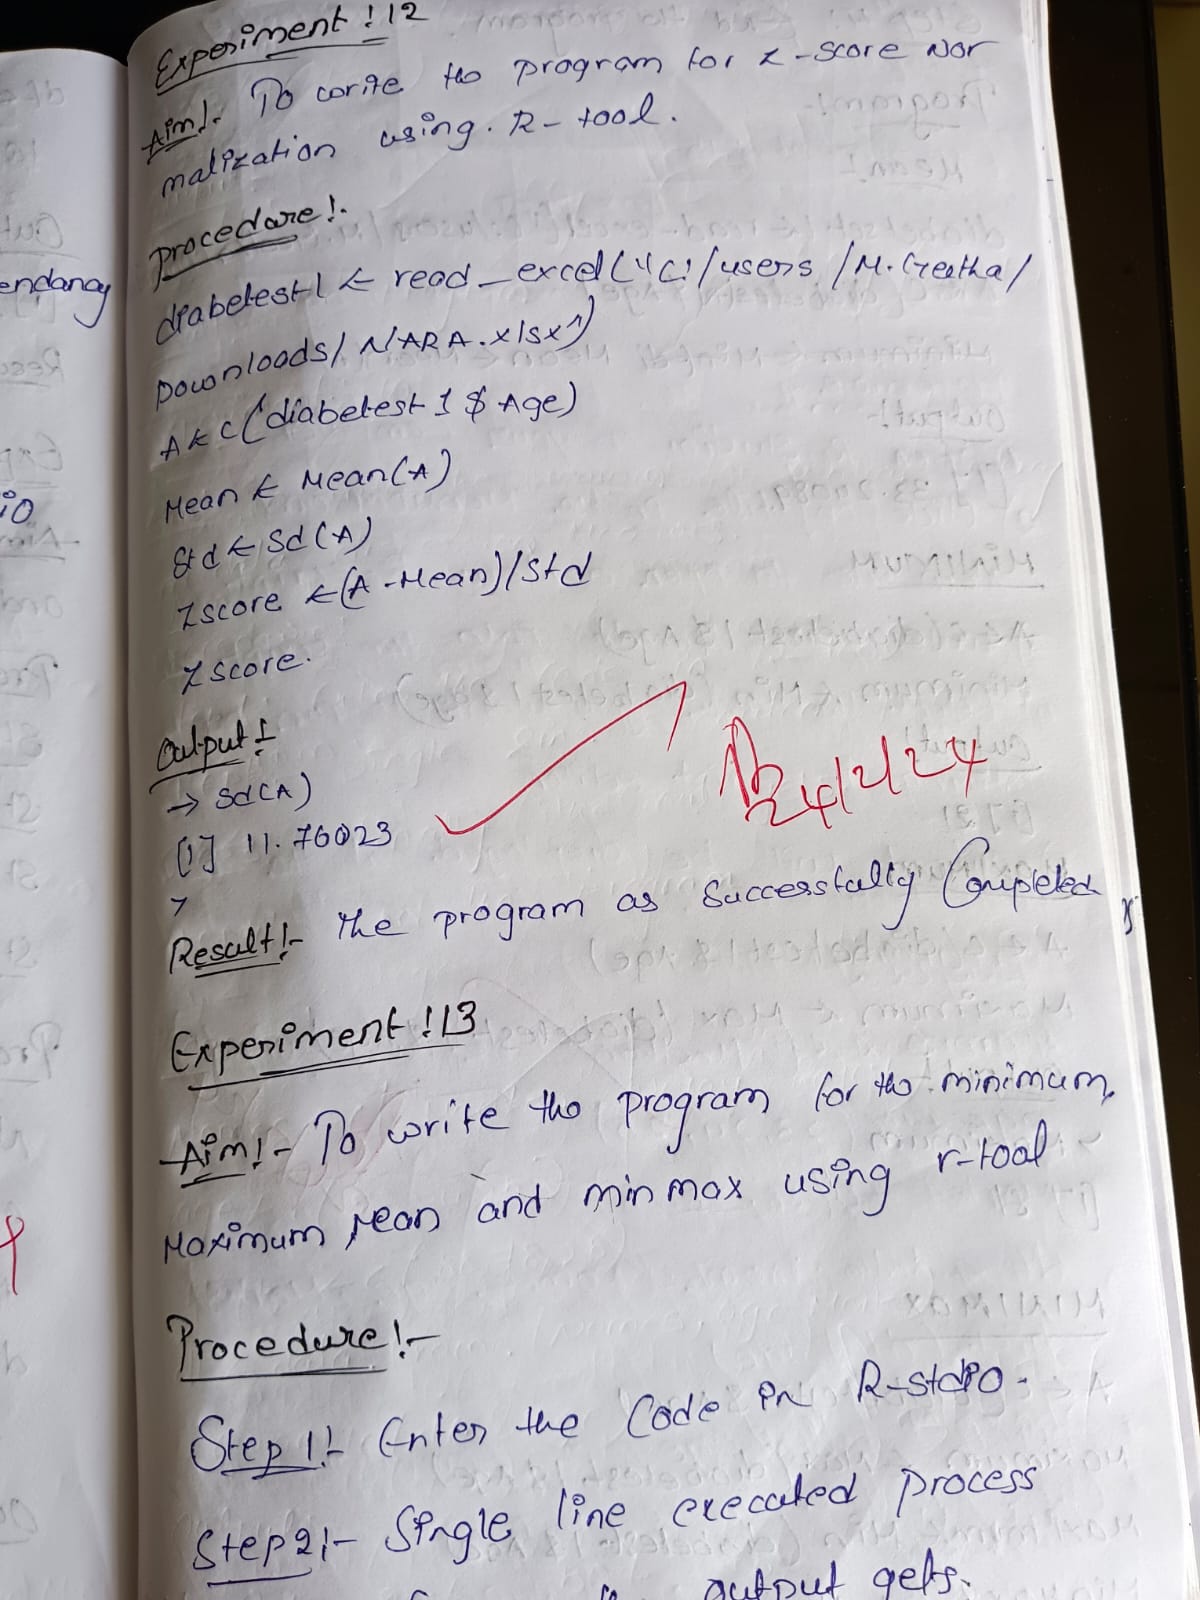 Experiment !12
Aim!- To write the program for z-score Nor
malization using. R-tool.
procedure!-
diabetest1 ← read_excel("C:/users/M.Geetha/
Downloads/NARA.xlsx")
A ← c(diabetest1$Age)
Mean ← Mean(A)
Std ← Sd(A)
Zscore ← (A-Mean)/Std
Zscore.
Output!
→ Sd(A)
[1] 11.76023
>
24/2/24
Result!- The program as Successfully Completed
Experiment !13
Aim!- To write the program for the minimum,
Maximum, mean and min max using r-tool
Procedure!-
Step 1!- Enter the Code in R-stdio.
Step 2!- Single line executed process
output gets.
endanay
io